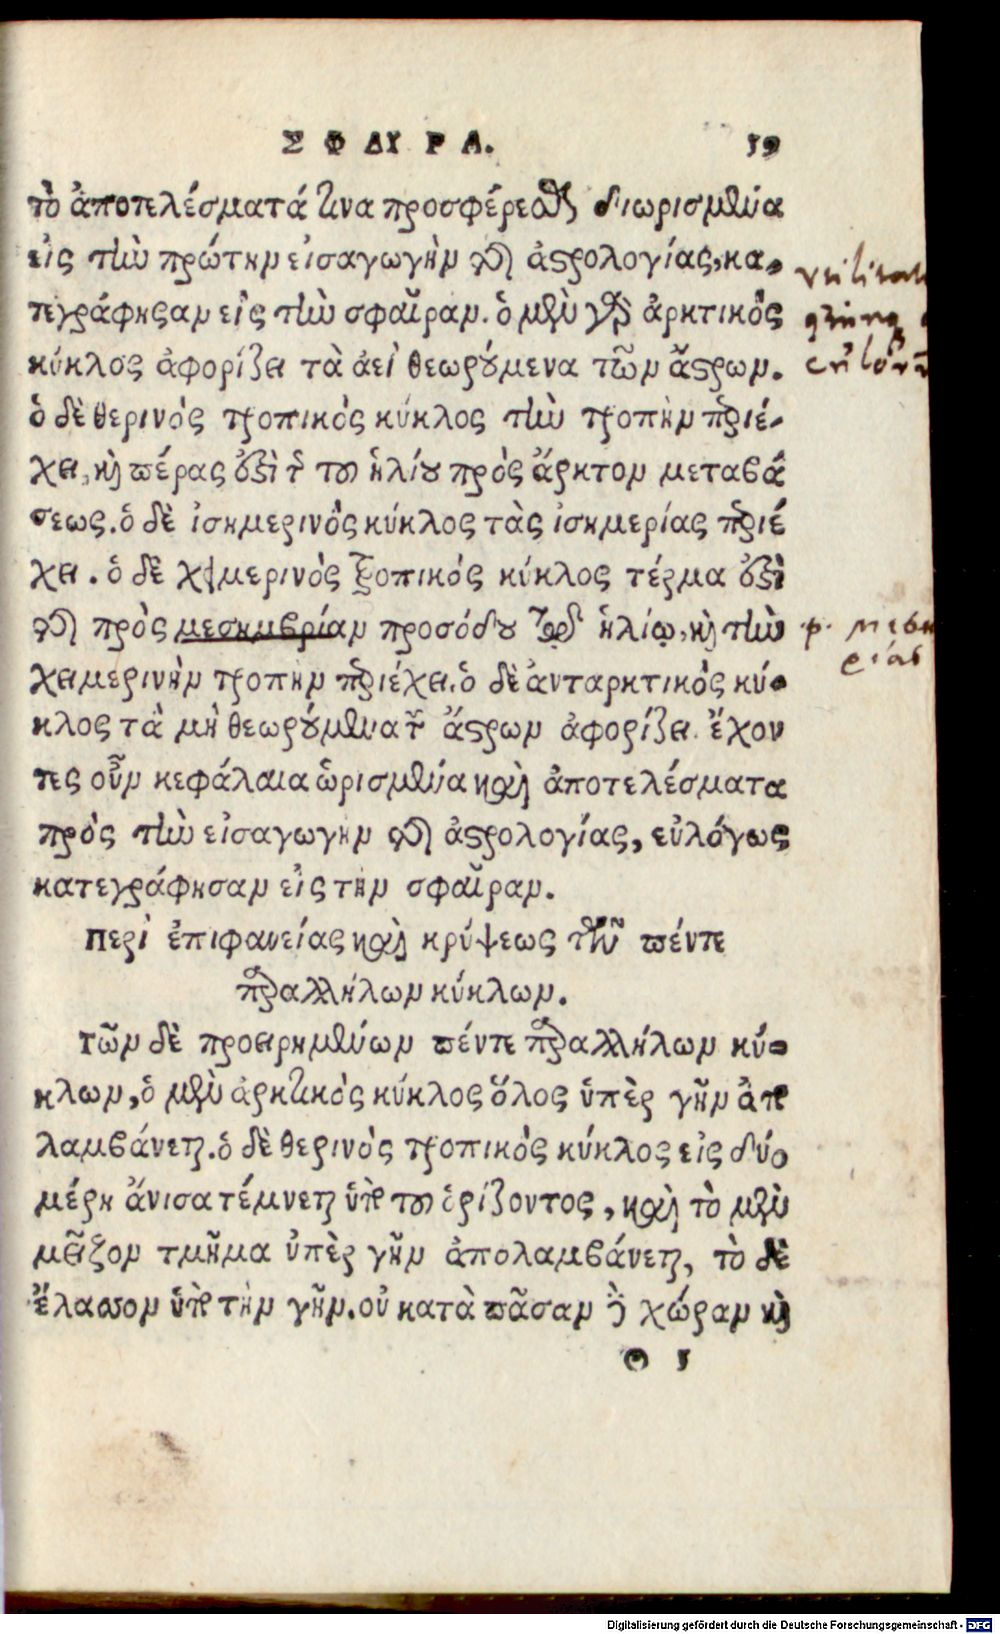 ΣΦΑΙΡΑ. 19
τὸ ἀποτελέσματά τινα προσφέρεσθαι διωρισμένα
εἰς τὴν πρώτην εἰσαγωγὴν τῆς ἀστρολογίας, κα-
τεγράφησαν εἰς τὴν σφαῖραν. ὁ μὲν γὰρ ἀρκτικὸς
κύκλος ἀφορίζει τὰ ἀεὶ θεωρούμενα τῶν ἄστρων.
ὁ δὲ θερινὸς τροπικὸς κύκλος τὴν τροπὴν περιέ-
χει, καὶ πέρας ἐστὶ τῆς τοῦ ἡλίου πρὸς ἄρκτον μεταβά
σεως. ὁ δὲ ἰσημερινὸς κύκλος τὰς ἰσημερίας περιέ
χει. ὁ δὲ χειμερινὸς τροπικὸς κύκλος τέρμα ἐστὶ
τῆς πρὸς μεσημβρίαν προσόδου τῷ ἡλίῳ, καὶ τὴν
χειμερινὴν τροπὴν περιέχει. ὁ δὲ ἀνταρκτικὸς κύ-
κλος τὰ μὴ θεωρούμενα τῶν ἄστρων ἀφορίζει. ἔχον
τες οὖν κεφάλαια ὡρισμένα καὶ ἀποτελέσματα
πρὸς τὴν εἰσαγωγὴν τῆς ἀστρολογίας, εὐλόγως
κατεγράφησαν εἰς τὴν σφαῖραν.
Περὶ ἐπιφανείας καὶ κρύψεως τῶν πέντε
παραλλήλων κύκλων.
Τῶν δὲ προειρημένων πέντε παραλλήλων κύ-
κλων, ὁ μὲν ἀρκτικὸς κύκλος ὅλος ὑπὲρ γῆν ἀπο
λαμβάνεται. ὁ δὲ θερινὸς τροπικὸς κύκλος εἰς δύο
μέρη ἄνισα τέμνεται ὑπὸ τοῦ ὁρίζοντος, καὶ τὸ μὲν
μεῖζον τμῆμα ὑπὲρ γῆν ἀπολαμβάνεται, τὸ δὲ
ἔλασσον ὑπὸ τὴν γῆν. οὐ κατὰ πᾶσαν δὲ χώραν καὶ
Θ 3
Digitalisierung gefördert durch die Deutsche Forschungsgemeinschaft - DFG